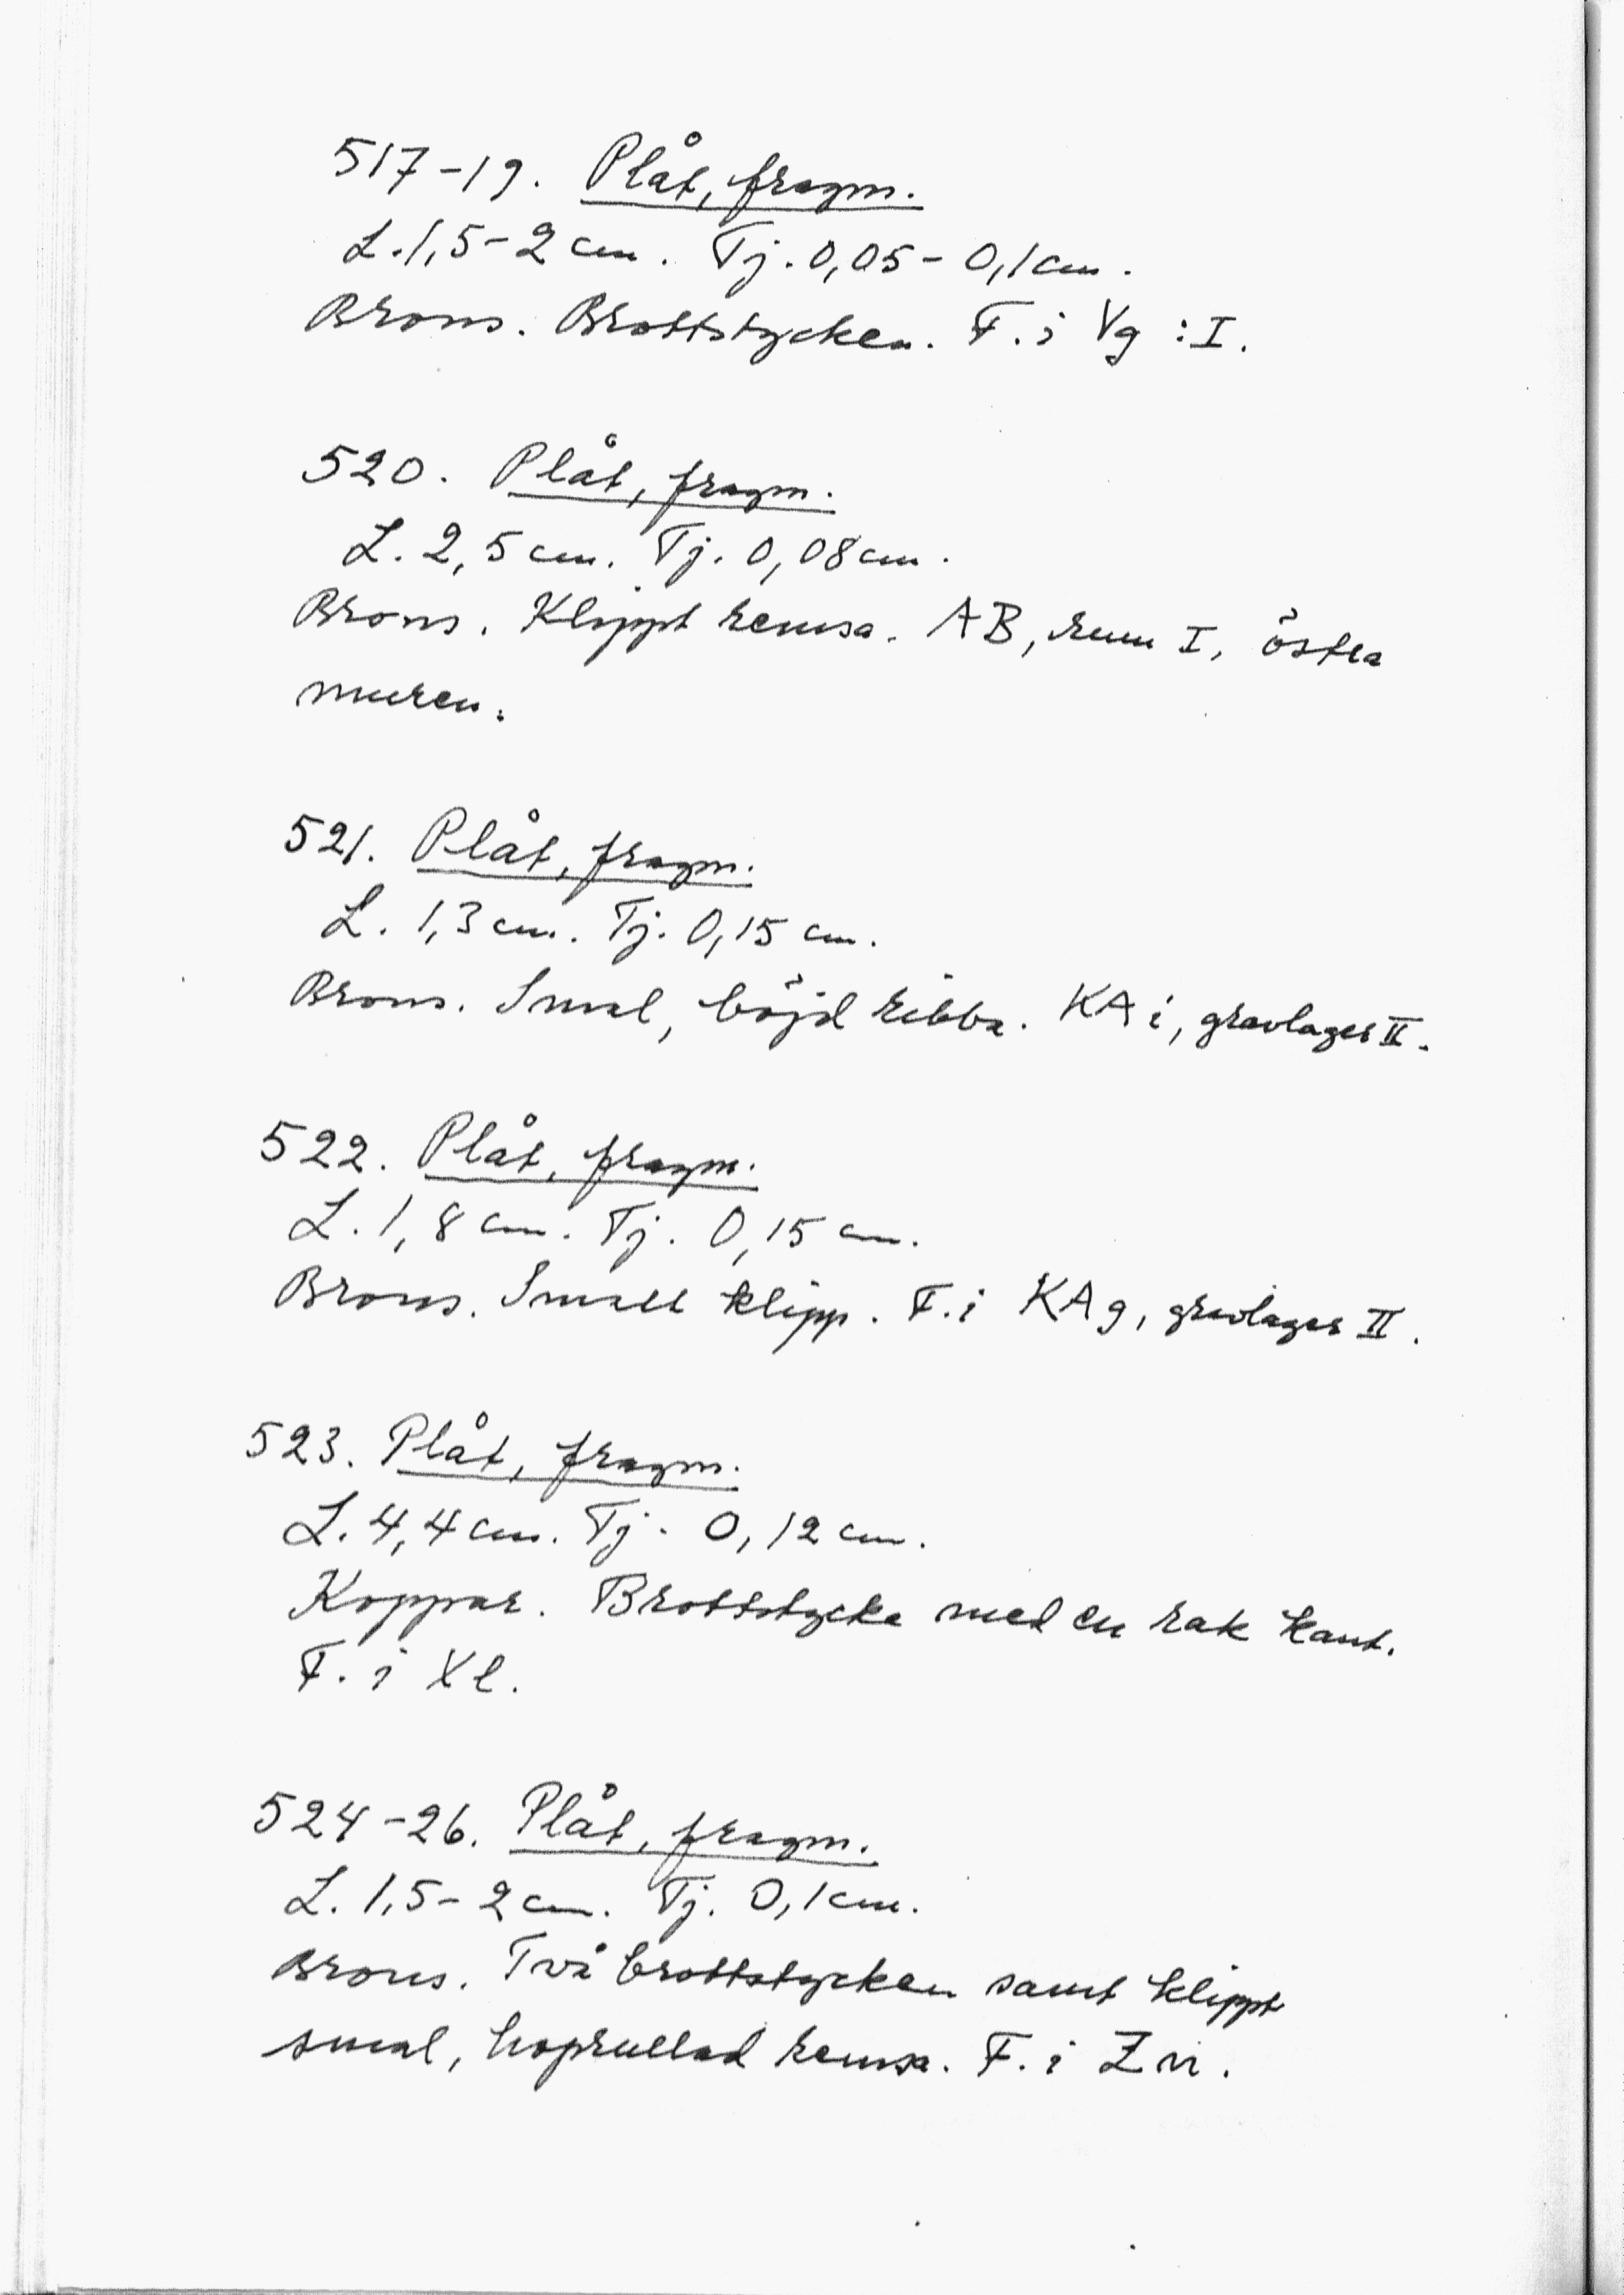 517-19. Plåt, fragm.
L. 1,5-2 cm. Tj. 0,05-0,1 cm.
Brons. Brottstycken. F. i Vg : I.
520. Plåt, fragm.
L. 2,5 cm. Tj. 0,08 cm.
Brons. Klippt remsa. AB, rum I, östra
muren.
521. Plåt, fragm.
L. 1,3 cm. Tj. 0,15 cm.
Brons. Smal, böjd ribba. KA i, gravlager II.
522. Plåt, fragm.
L. 1,8 cm. Tj. 0,15 cm.
Brons. Smalt klipp. F. i KA g, gravlager II.
523. Plåt, fragm.
L. 4,4 cm. Tj. 0,12 cm.
Koppar. Brottstycke med en rak kant.
F. i Xl.
524-26. Plåt, fragm.
L. 1,5-2 cm. Tj. 0,1 cm.
Brons. Två brottstycken samt klippt
smal, hoprullad remsa. F. i Z n.